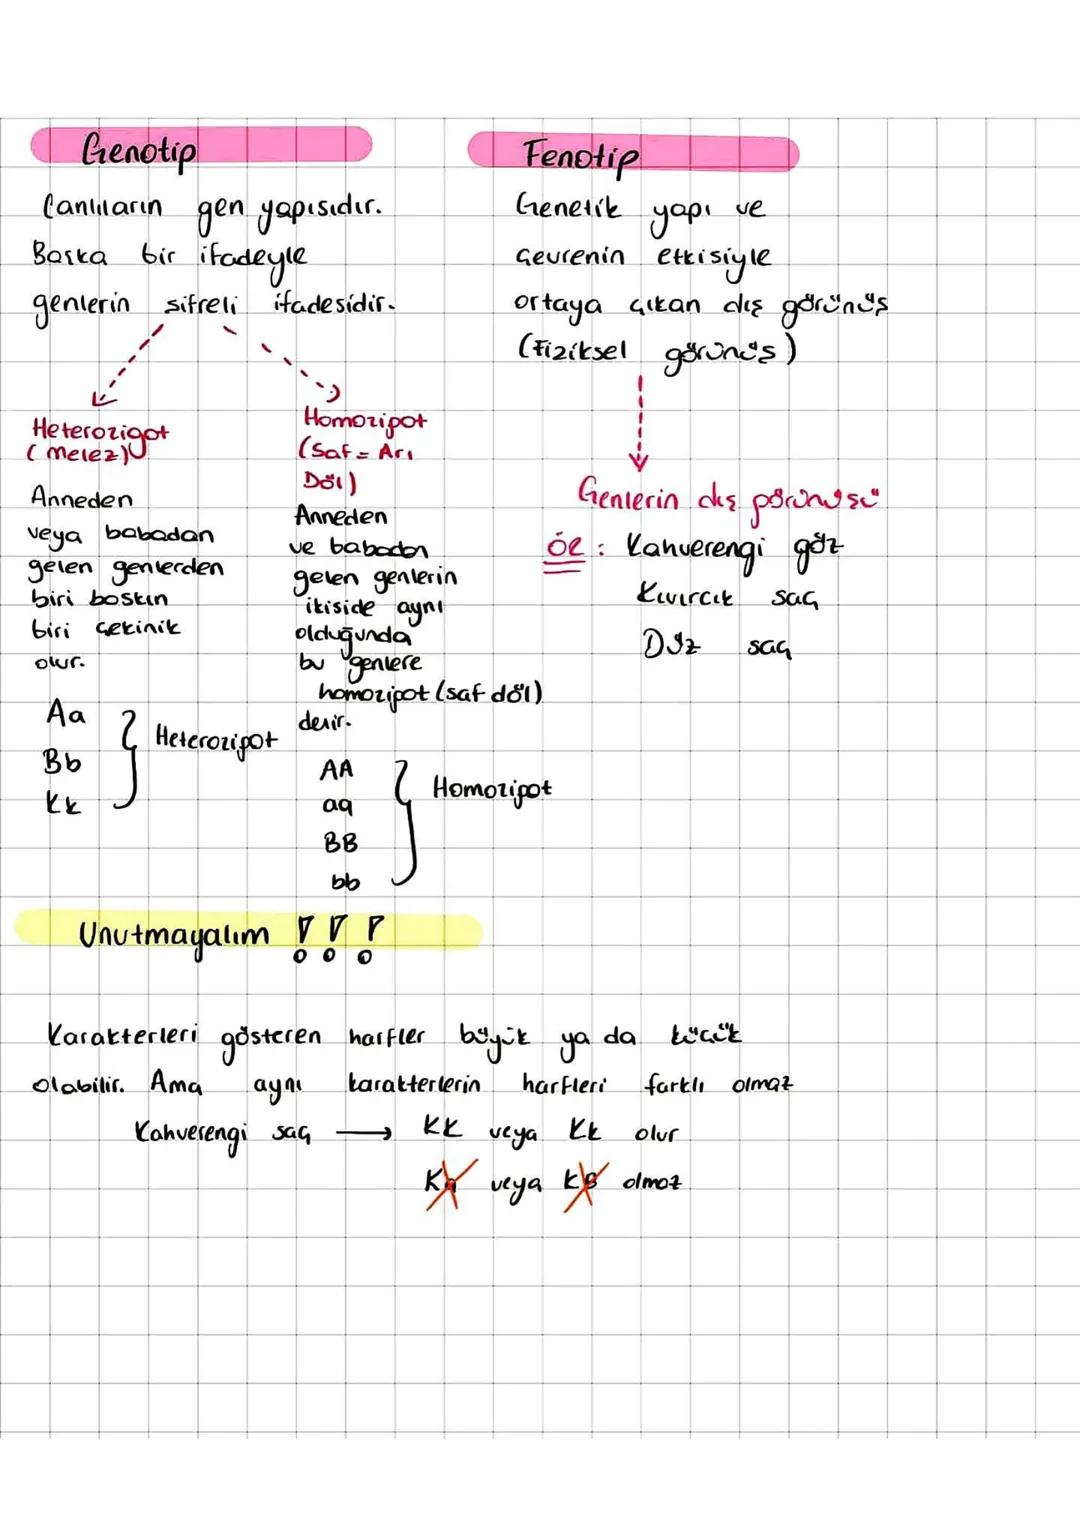 Genotip
Canlıların gen yapısıdır.
Başka bir ifadeyle
genlerin şifreli ifadesidir.
Heterozigot
(Melez)
Anneden
veya babadan
gelen genlerden
biri baskın
biri çekinik
olur.
Aa
Bb
Kk
Heterozigot
Homozigot
(Saf = Arı
Döl)
Anneden
ve babadan
gelen genlerin
ikiside aynı
olduğunda
bu genlere
homozigot (saf döl)
denir.
AA
aa
BB
bb
Homozigot
Fenotip
Genetik yapı ve
çevrenin etkisiyle
ortaya çıkan dış görünüş
(Fiziksel görünüş)
Genlerin dış görünüşü
ÖR : Kahverengi göz
Kıvırcık saç
Düz saç
Unutmayalım !!!
Karakterleri gösteren harfler büyük ya da küçük
olabilir. Ama aynı karakterlerin harfleri farklı olmaz
Kahverengi saç → KK veya Kk olur
veya olmaz